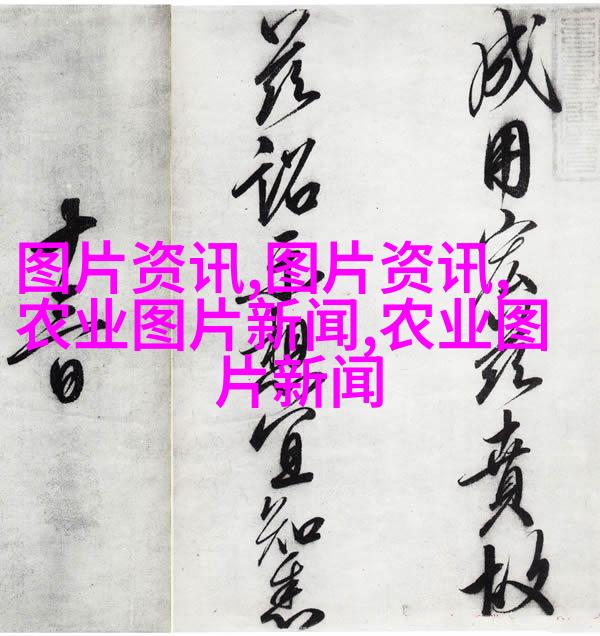 图片资讯,图片资讯,
农业图片新闻,农业图
片新闻
成用宏兹賁故
兹詔示想宜知悉
十 日